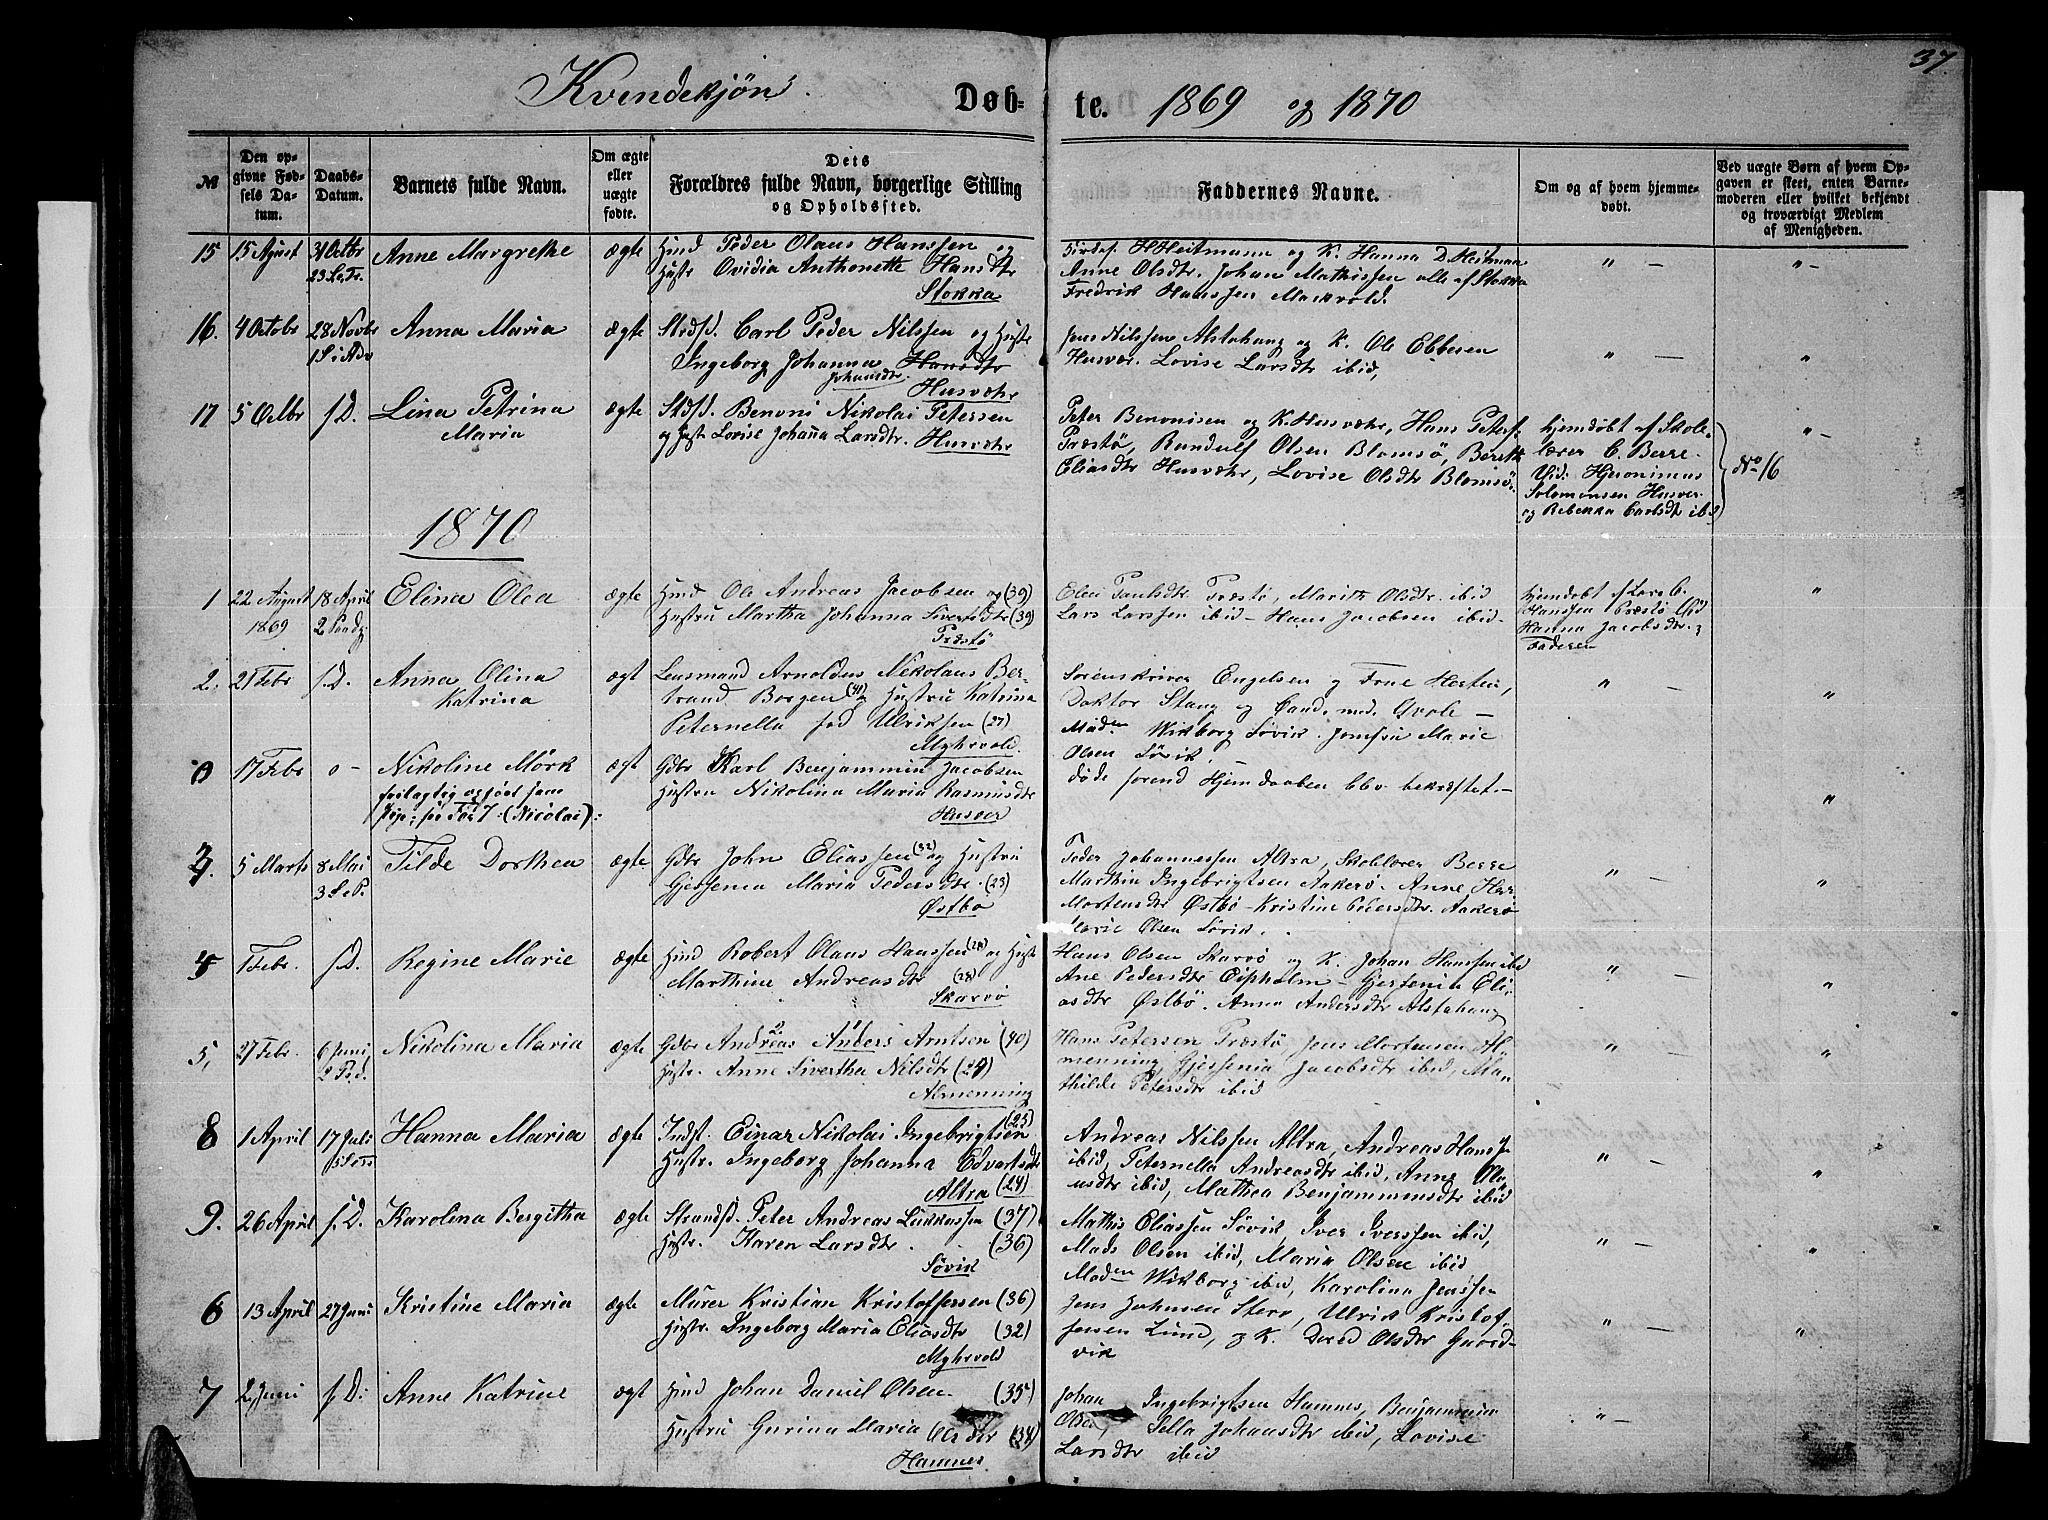 37
Kvindekjön. Døb- te. 1869 og 1870
№
Den op-
givne Fød-
sels Da-
tum.
Daabs-
Datum.
Barnets fulde Navn.
Om ægte
eller
uægte
fødte.
Dets
Forældres fulde Navn, borgerlige Stilling
og Opholdssted.
Faddernes Navne.
Om og af hvem hjemme-
døbt.
Ved uægte Børn af hvem Op-
gaven er skeet, enten Barne-
moderen eller hvilket bekjendt
og troværdigt Medlem
af Menigheden.
15 15 August 31 Octbr Anne Margrethe ægte Hmd Peder Olaus Hanssen og
Hustr Ovidia Anthonette Hansdtr
Stokka
H. Heitmann og K. Hanna D. Heitman
Anne Olsdtr. Johan Mathissen alle af Stokka
Fredrik Hanssen Markvold.
16. 4 Octobr 28 Novbr Anna Maria ægte Strdsd. Carl Peder Nilssen og Hustr
1 S i Adv Ingeborg Johanna Hansdtr
Johansdtr.
Husvær
Jens Nilssen Alstahaug og K. Ole Ebbesen
Husvær. Lovise Larsdtr ibid,
17 5 Octbr s.D. Lina Petrina ægte Stdsd. Benoni Nikolai Petersen
Maria og Hustr Lovise Johanna Larsdtr. Husvær
Peter Benonisen og K. Husvær, Hans Peters.
Præstø, Randulf Olsen Blomsö, Berith
Eliasdtr Husvær, Lovise Olsdtr Blomsö.
Hjemdøbt af Skole-
lærer C. Berre.
Vid: Hjeronimus
Solomonsen Husvær
og Rebekka Carlsdtr ibid
No 16
1870
1 22 August 18 April Elina Olea ægte Hmd Ole Andreas Jacobsen og (39)
1869 2 Paadg. Hustru Martha Johanna Sivertsdtr (39)
Præstö
Elen Paulsdtr Præstö, Marith Olsdtr. ibid
Lars Larssen ibid - Hans Jacobsen ibid.
Hjemdöbt af Lars C.
Hanssen Præstö Vid
Hanna Jacobsdtr.
Faderen
2. 21 Febr s.D. Anna Olina ægt Lensmand Arnoldus Nikolaus Ber-
Katrina trand Borgen (41) og Hustru Katrina
Peternella fød Ulriksen (27)
Myhrvold.
Sorenskriver Engelsen og Frue Herten,
Doktor Stang og Cand. med. Qvale -
Madn Wikborg Sövik. Jomfru Marie
Olsen Sövik.
0 17 Febr o- Nikoline Mörk ægt Gdbr Karl Benjammin Jacobsen
Hustru Nikolina Maria Rasmusdtr
(Nicolai) Husvær
döde forend Hjemdaaben blev bekræftet.
3. 5 Marts 8 Mai Tilde Dorthea ægte Gdbr John Eliassen (32) og Hustru
3 S e P. Gjessenia Maria Pedersdtr. (23)
Østbö
Peder Johannessen Altra, Skolelærer Berre
Marthin Ingebrigtsen Aakerö. Anne
Mortensdtr Østbö - Kristine Pedersdtr. Aakerö
Marie Olsen Sövik.
4 1 Febr. s.D. Regine Marie ægte Hmd Robert Olaus Hanssen og Hustr
Marthine Andreasdtr (28)
Skarvö
Hans Olsen Skarvö og K. Johan Hanssen ibid
Ane Pedersdtr Eipholm - Gjertenia Eli-
asdtr Østbö. Anna Andersdtr Alstahaug
5, 27 Febr. 6 Juni Nikolina Maria ægte Gdbr Andreas Anders Arntsen (40)
2 P.d. Hustr. Anne Sivertha Nilsdtr (24)
Almenning
Hans Petersen Præstö, Jens Mortensen Al-
menning Gjessenia Jacobsdtr ibid, Ma-
thilde Petersdtr ibid
8 1 April 17 Juli Hanna Maria ægte Indst. Einar Nikolai Ingebrigtsen (25)
Hustr. Ingeborg Johanna Edvartsdtr
Altra (24)
Andreas Nilssen Altra, Andreas Hanss.
ibid, Peternella Andreasdtr ibid, Anne Ola-
usdtr ibid, Mathea Benjaminsdtr ibid
9. 26 April s.D. Karolina Bergitha ægte Strandsd. Peter Andreas Lukkassen (37)
Hustr. Karen Larsdtr. (36)
Sövik
Mathis Eliassen Sövik, Iver Iverssen ibid,
Mads Olsen ibid, Maria Olsen ibid,
Maden Wikborg ibid, Karolina Jenssen
6 13 April 27 Juni Kristine Maria ægte Murer Kristian Kristoffersen (36)
Hustr. Ingeborg Maria Eliasdtr (32)
Myhrvold
Jens Johnsen Sterø, Ulrik Kristof-
fersen Lund, og K. Olsdtr
vik
7 2 Juni s.D: Anne Katrine ægt Hmd Johan Daniel Olsen (35)
Hustru Gurina Maria Olsdtr (34)
Hamnes
Johan Ingebrigtsen Hamnes, Benjammin
Olsen, Sella Johansdtr ibid, Lovise
Larsdtr ibid